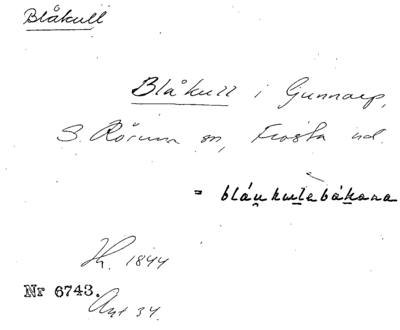 Blåkull
Blåkull i Gunnarp,
S. Rörum sn, Frosta hd.
= bláu̠kul̠ebák̠ana
Jh. 1844
Nr 6743.
Ant 34.